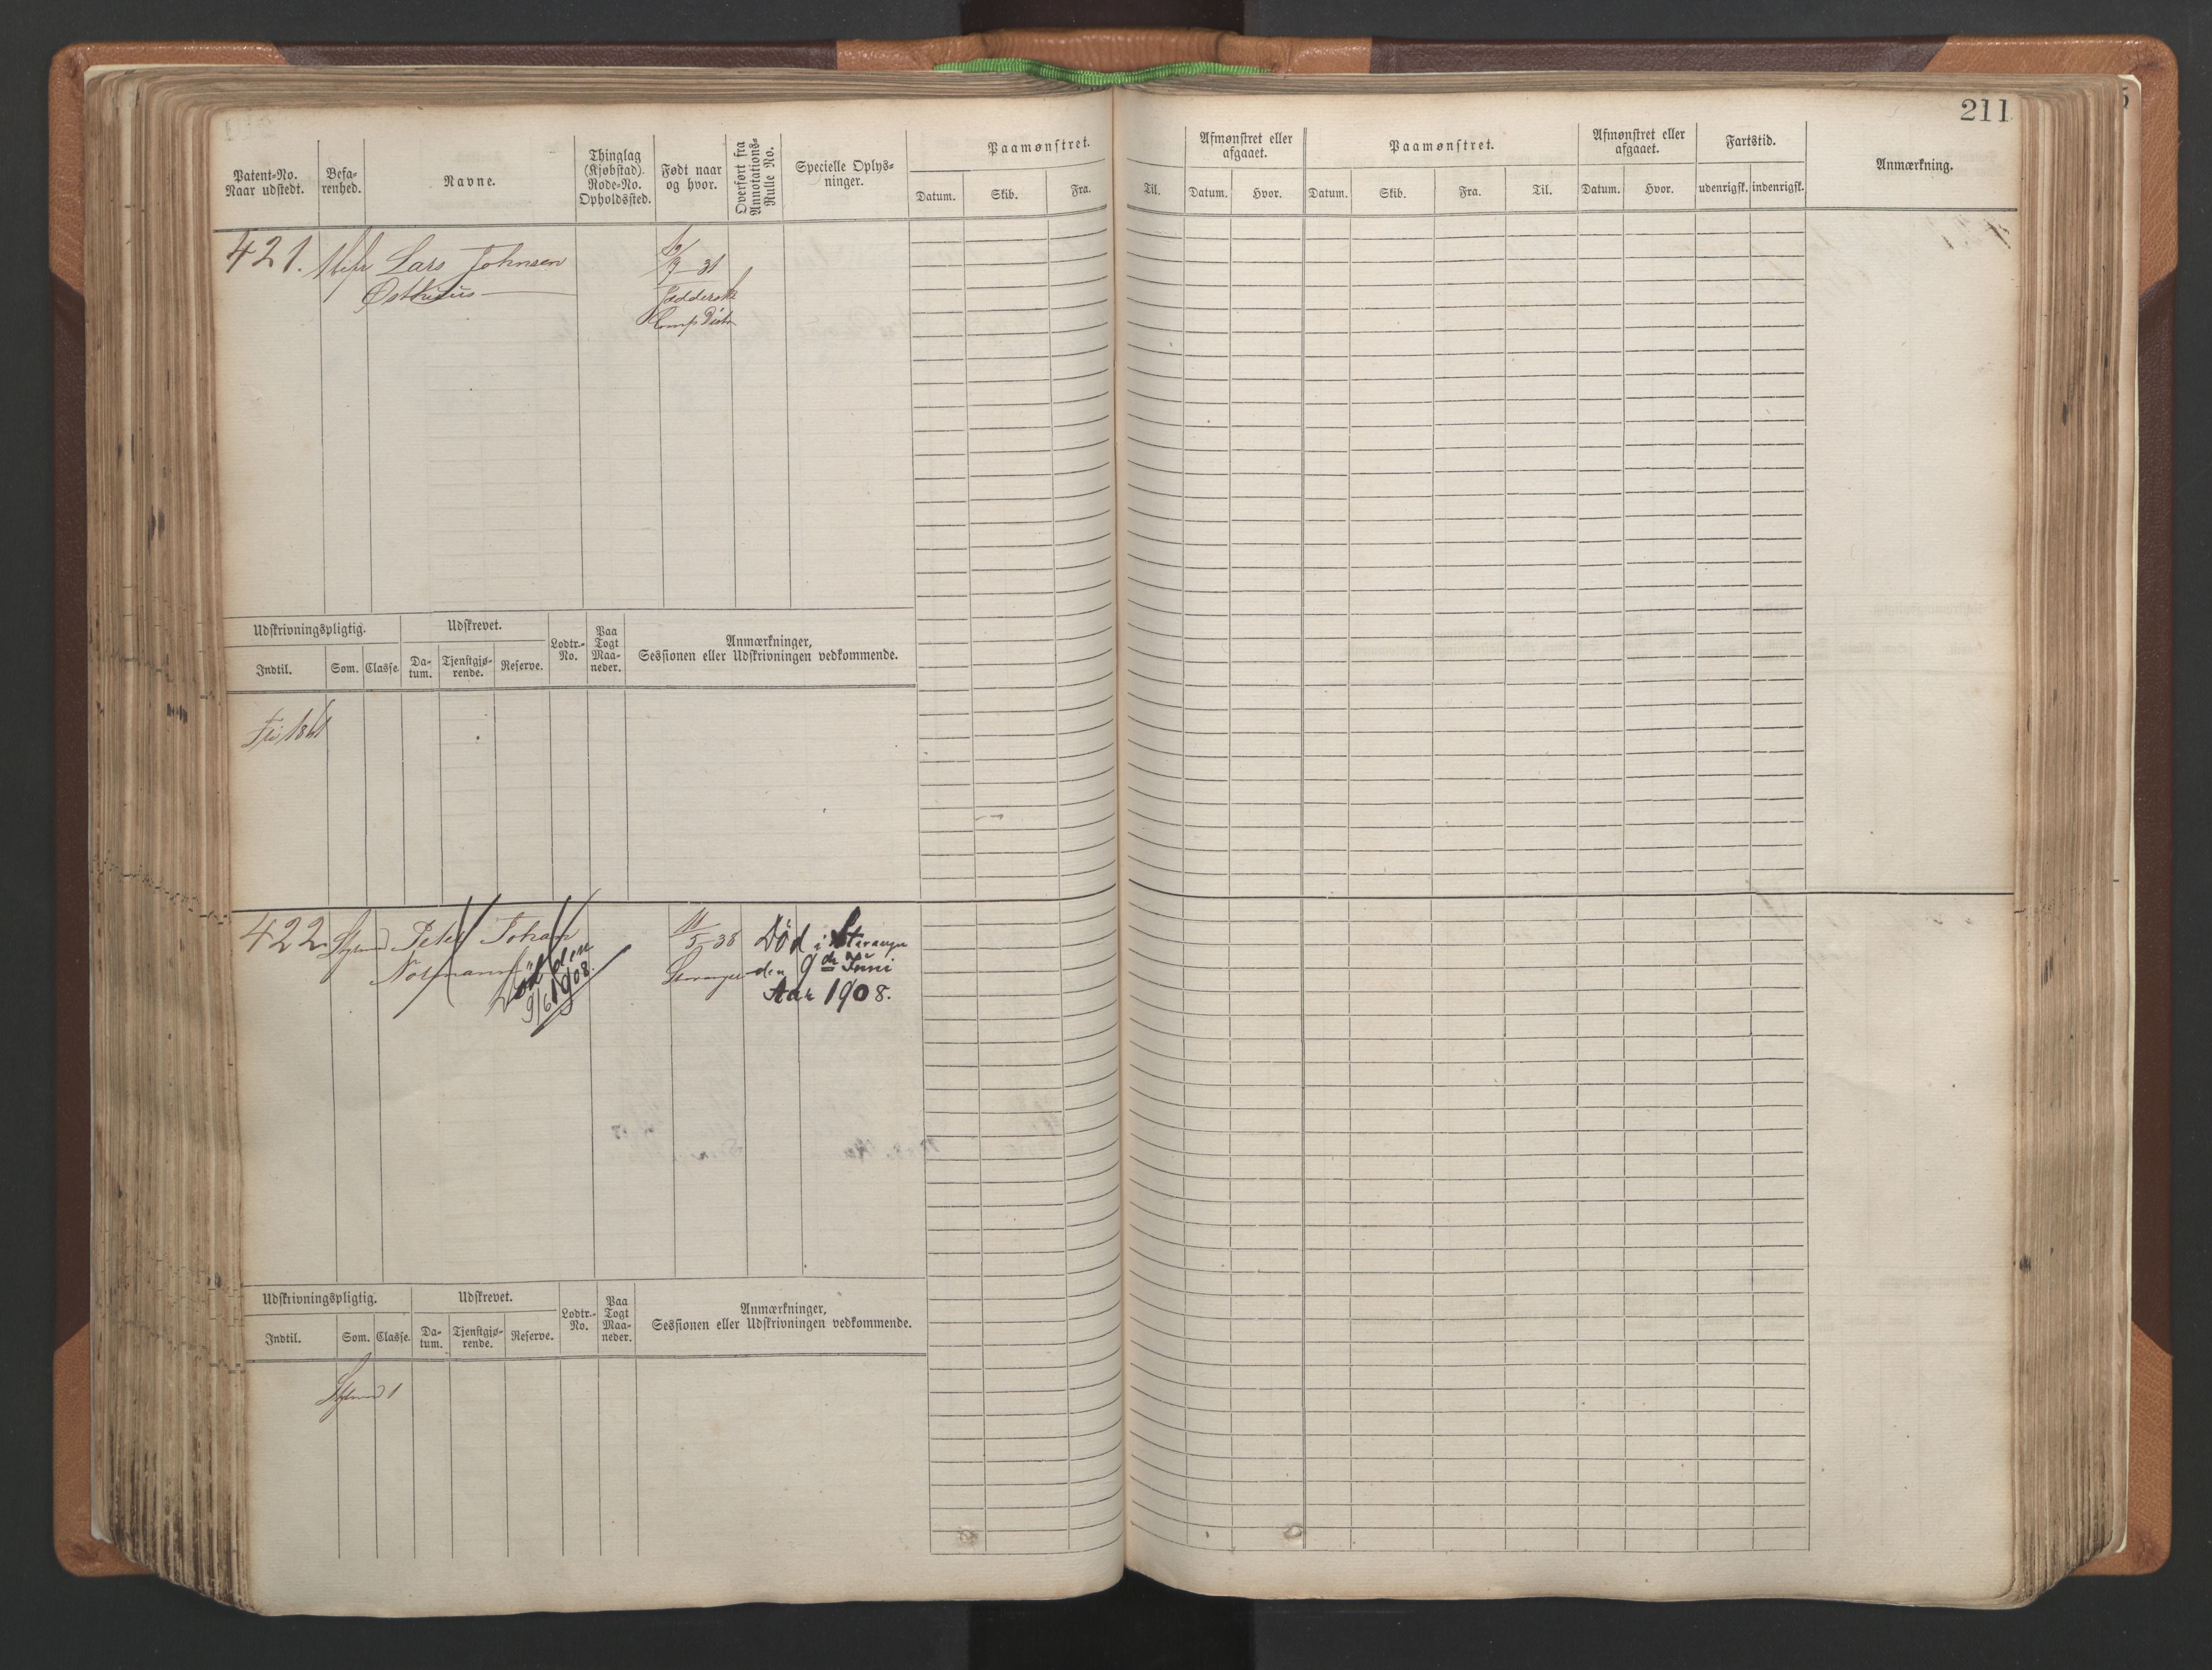 211
Patent-No. Naar udstedt. Befa-renhed. Navne. Thinglag (Kjøbstad). Rode-No. Opholdssted. Født naar og hvor. Overført fra Annotations-Rulle No. Specielle Oplys-ninger. Paamønstret. Datum. Skib. Fra.
Til. Afmønstret eller afgaaet. Datum. Hvor. Paamønstret. Datum. Skib. Fra. Til. Afmønstret eller afgaaet. Datum. Hvor. Fartstid. udenrigsk. indenrigsk. Anmærkning.
421. Lars Johnsen
Østhuus
31
Udskrivningspligtig. Udskrevet. Lodtr.-No. Paa Togt Maa-neder. Anmærkninger, Sessionen eller Udskrivningen vedkommende.
Indtil. Som. Classe. Da-tum. Tjenstgjø-rende. Reserve.
1861
422 Peter Johan
11/5-38
Død i Stavanger
den 9de Juni
Aar 1908.
Stavanger
Død den
9/6 1908.
Udskrivningspligtig. Udskrevet. Lodtr.-No. Paa Togt Maa-neder. Anmærkninger, Sessionen eller Udskrivningen vedkommende.
Indtil. Som. Classe. Da-tum. Tjenstgjø-rende. Reserve.
1